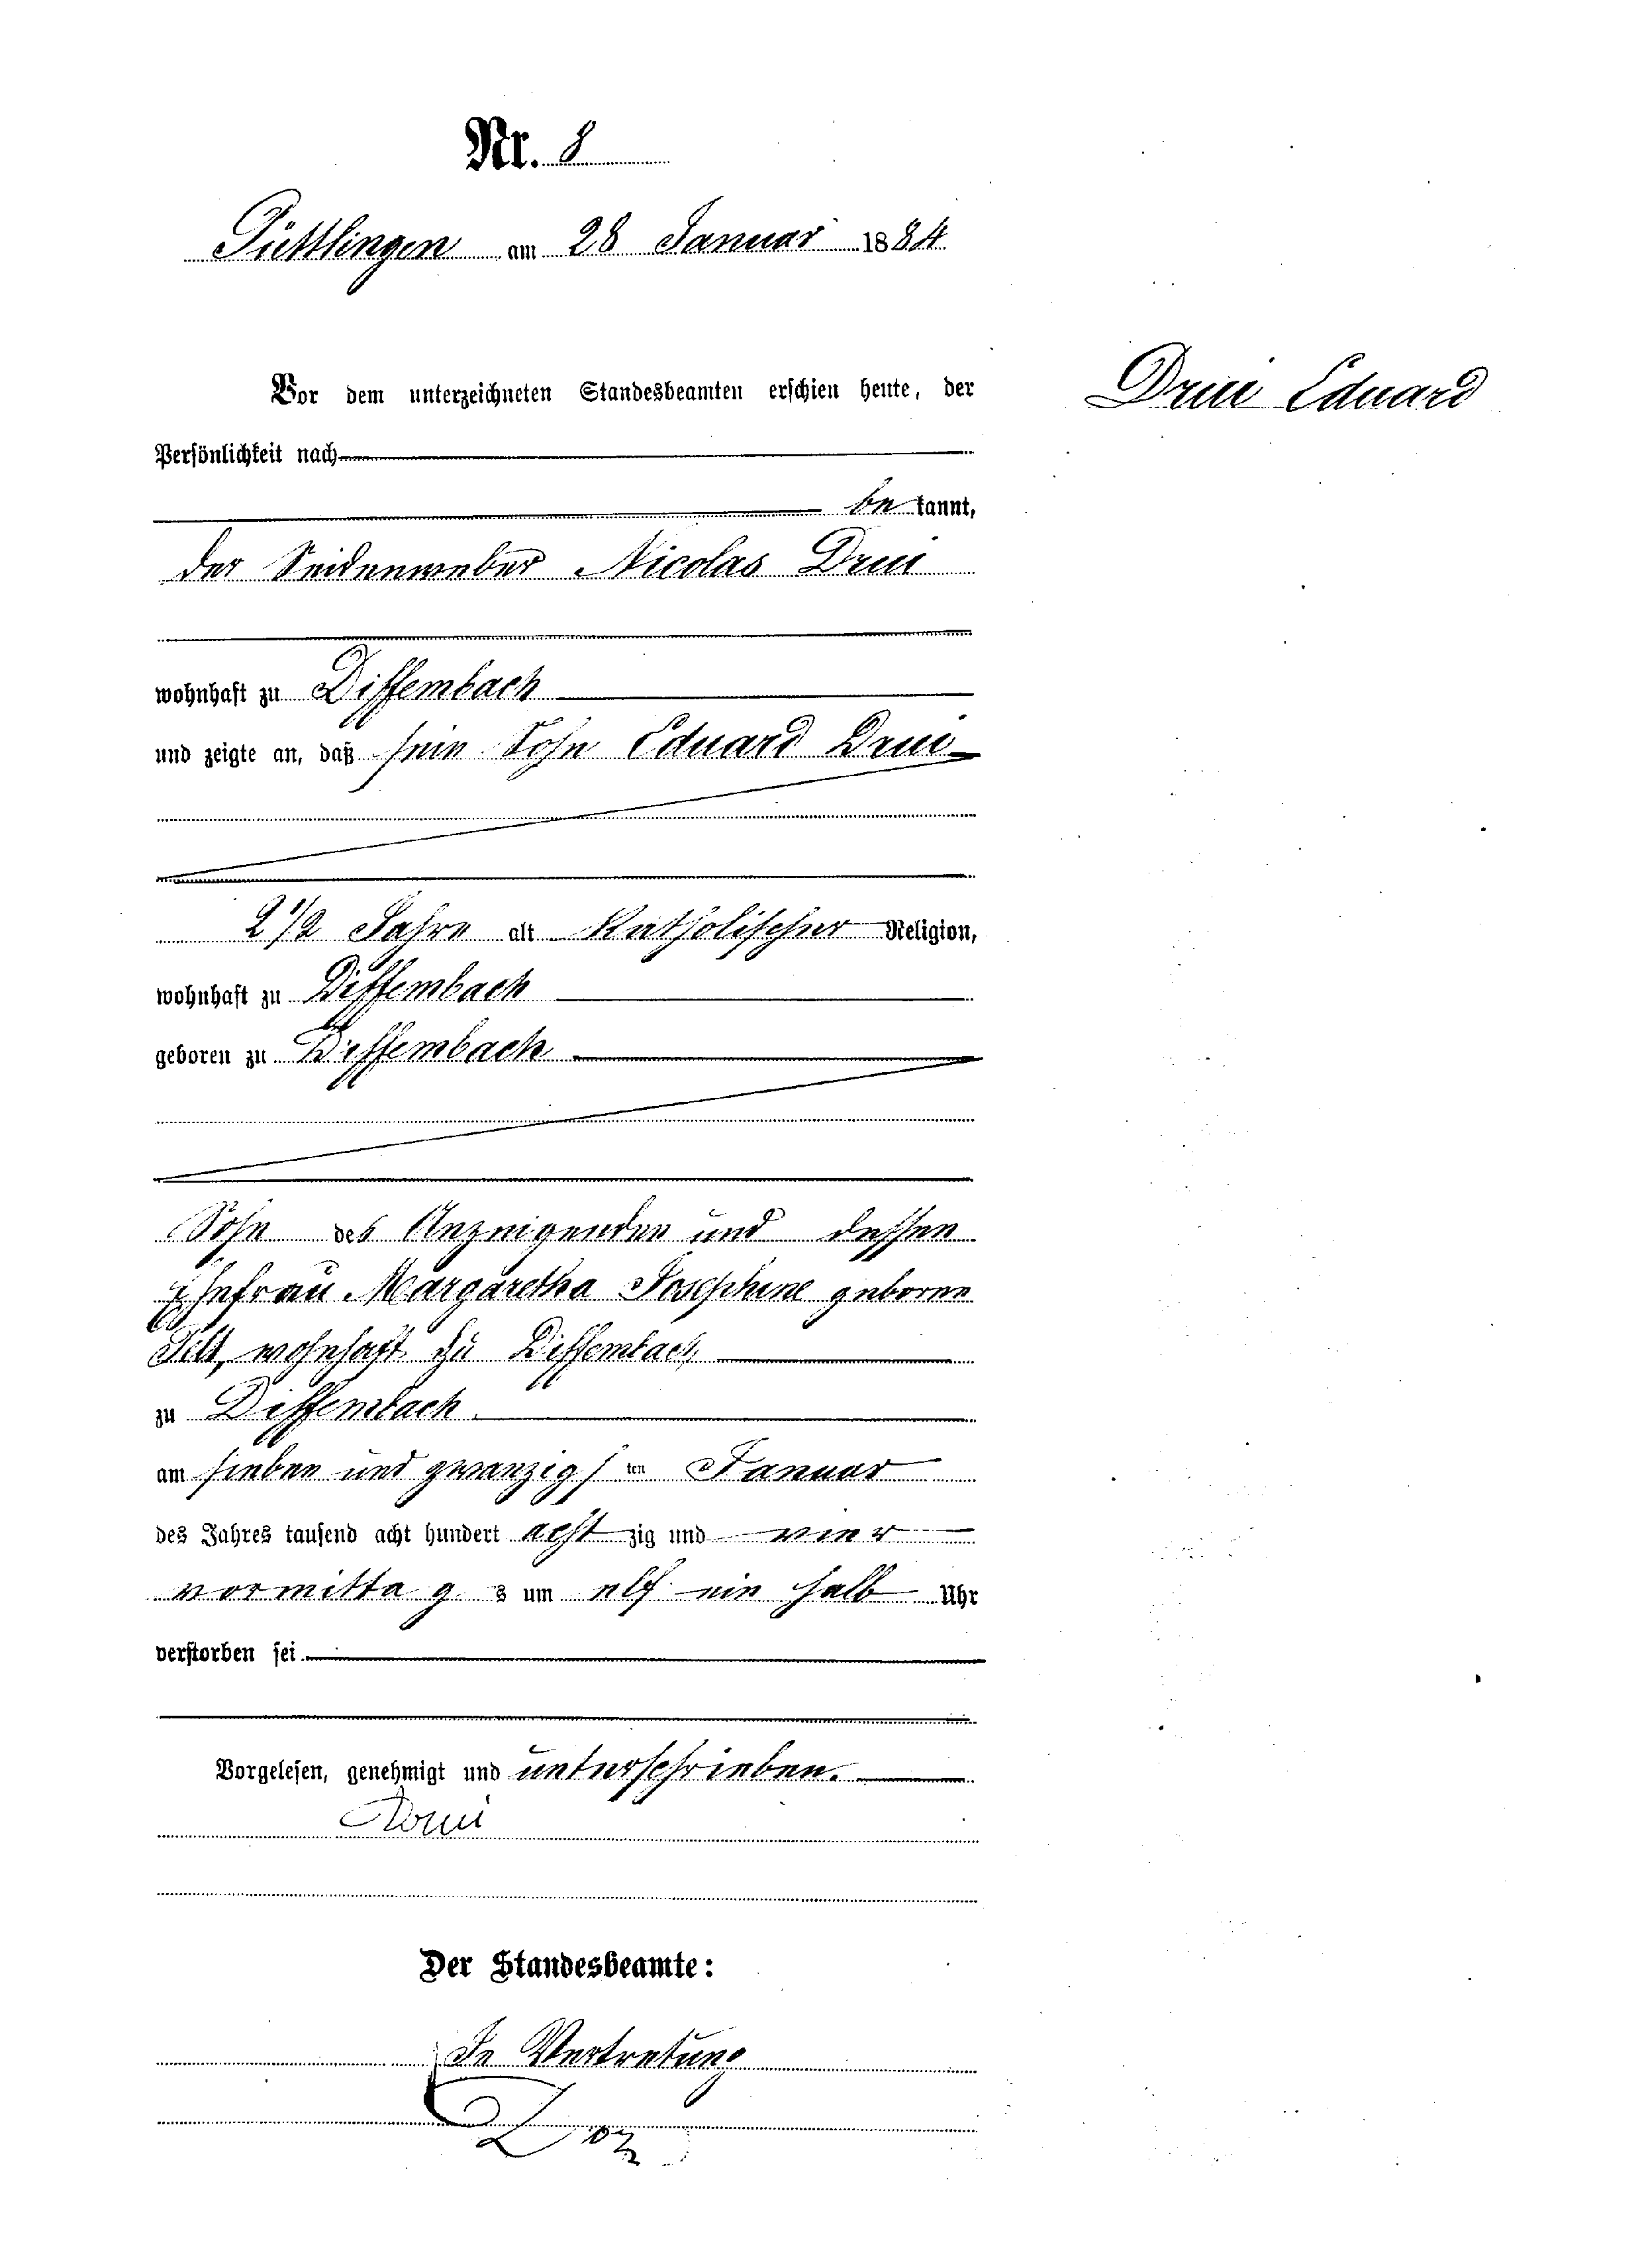 Nr. 8
Püttlingen am 28 Januar 1884
Vor dem unterzeichneten Standesbeamten erschien heute, der
Drui Eduard
Persönlichkeit nach
be kannt,
der Seidenweber Nicolas Drui
wohnhaft zu Diffembach
und zeigte an, daß sein Sohn Eduard Drui
2 1/2 Jahre alt Katholischer Religion,
wohnhaft zu Diffembach
geboren zu Diffembach
Sohn des Anzeigenden und dessen
Ehefrau Margaretha Josephine geborene
wohnhaft zu Diffembach
zu Diffembach
am sieben und zwanzigs ten Januar
des Jahres tausend acht hundert acht zig und vier
vormittag s um elf ein halb Uhr
verstorben sei
Vorgelesen, genehmigt und unterschrieben.
Drui
Der Standesbeamte:
In Vertretung